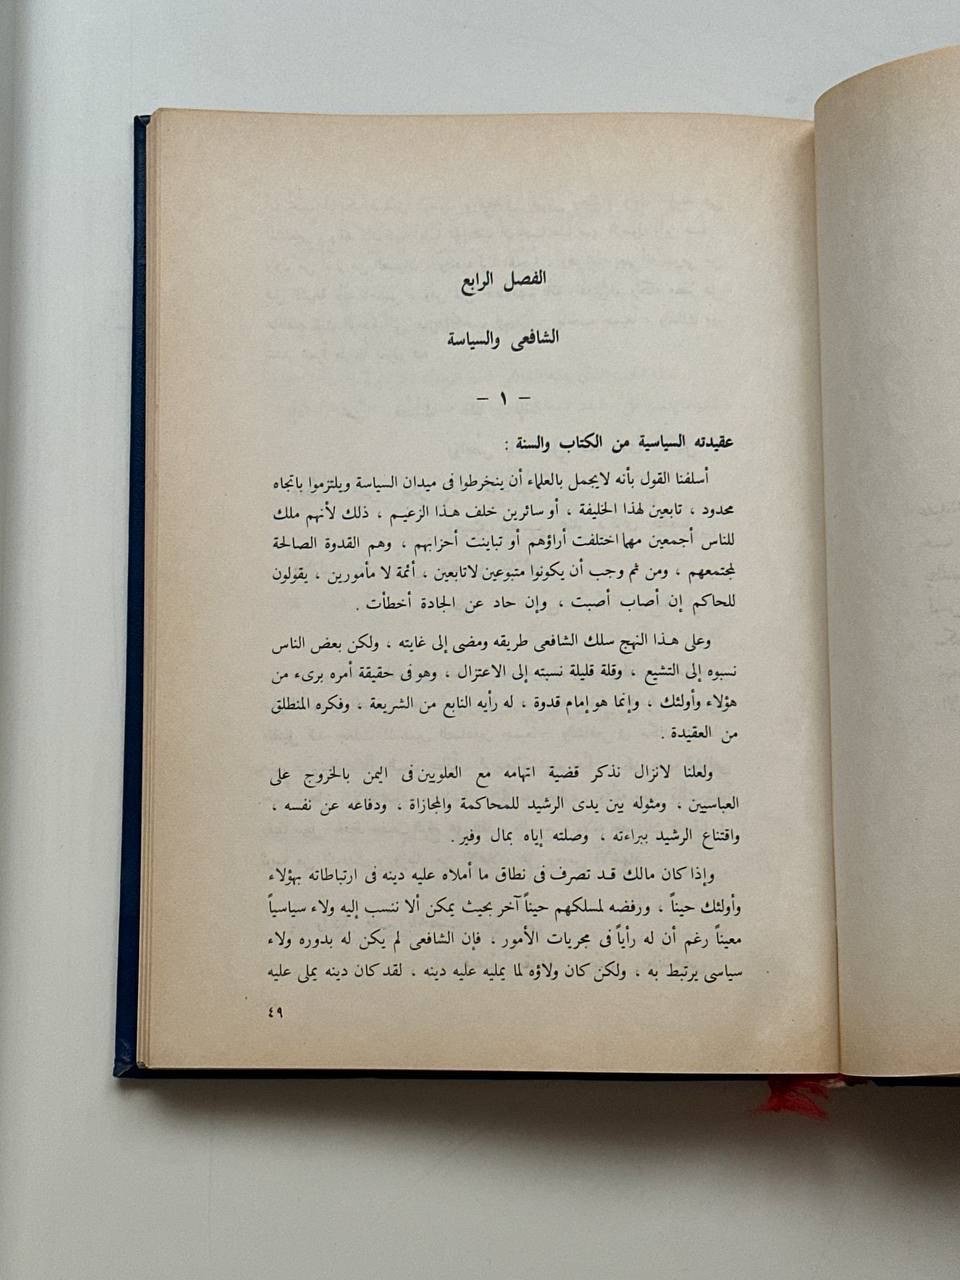 الفصل الرابع
الشافعى والسياسة
– ١ –
عقيدته السياسية من الكتاب والسنة :
أسلفنا القول بأنه لايجمل بالعلماء أن ينخرطوا فى ميدان السياسة ويلتزموا باتجاه
محدود ، تابعين لهذا الخليفة ، أو سائرين خلف هـذا الزعيـم ، ذلك لأنهم ملك
للناس أجمعين مهما اختلفت أراؤهم أو تباينت أحزابهم ، وهم القدوة الصالحة
لمجتمعهم ، ومن ثم وجب أن يكونوا متبوعين لاتابعين ، أئمة لا مأمورين ، يقولون
للحاكم إن أصاب أصبت ، وإن حاد عن الجادة أخطأت .
وعلى هـذا النهج سلك الشافعى طريقه ومضى إلى غايته ، ولكن بعض الناس
نسبوه إلى التشيع ، وقلة قليلة نسبته إلى الاعتزال ، وهو فى حقيقة أمره برىء من
هؤلاء وأولئك ، وإنما هو إمام قدوة ، له رأيه النابع من الشريعة ، وفكره المنطلق
من العقيدة .
ولعلنا لانزال نذكر قضية اتهامه مع العلويين فى اليمن بالخروج على
العباسيين ، ومثوله بين يدى الرشيد للمحاكمة والمجازاة ، ودفاعه عن نفسه ،
واقتناع الرشيد ببراءته ، وصلته إياه بمال وفير .
وإذا كان مالك قـد تصرف فى نطاق ما أملاه عليه دينه فى ارتباطاته بهؤلاء
وأولئك حيناً ، ورفضه لمسلكهم حيناً آخر بحيث يمكن ألا ننسب إليه ولاء سياسياً
معيناً رغم أن له رأياً فى مجريات الأمور ، فإن الشافعى لم يكن له بدوره ولاء
سياسى يرتبط به ، ولكن كان ولاؤه لما يمليه عليه دينه ، لقد كان دينه يملى عليه
٤٩